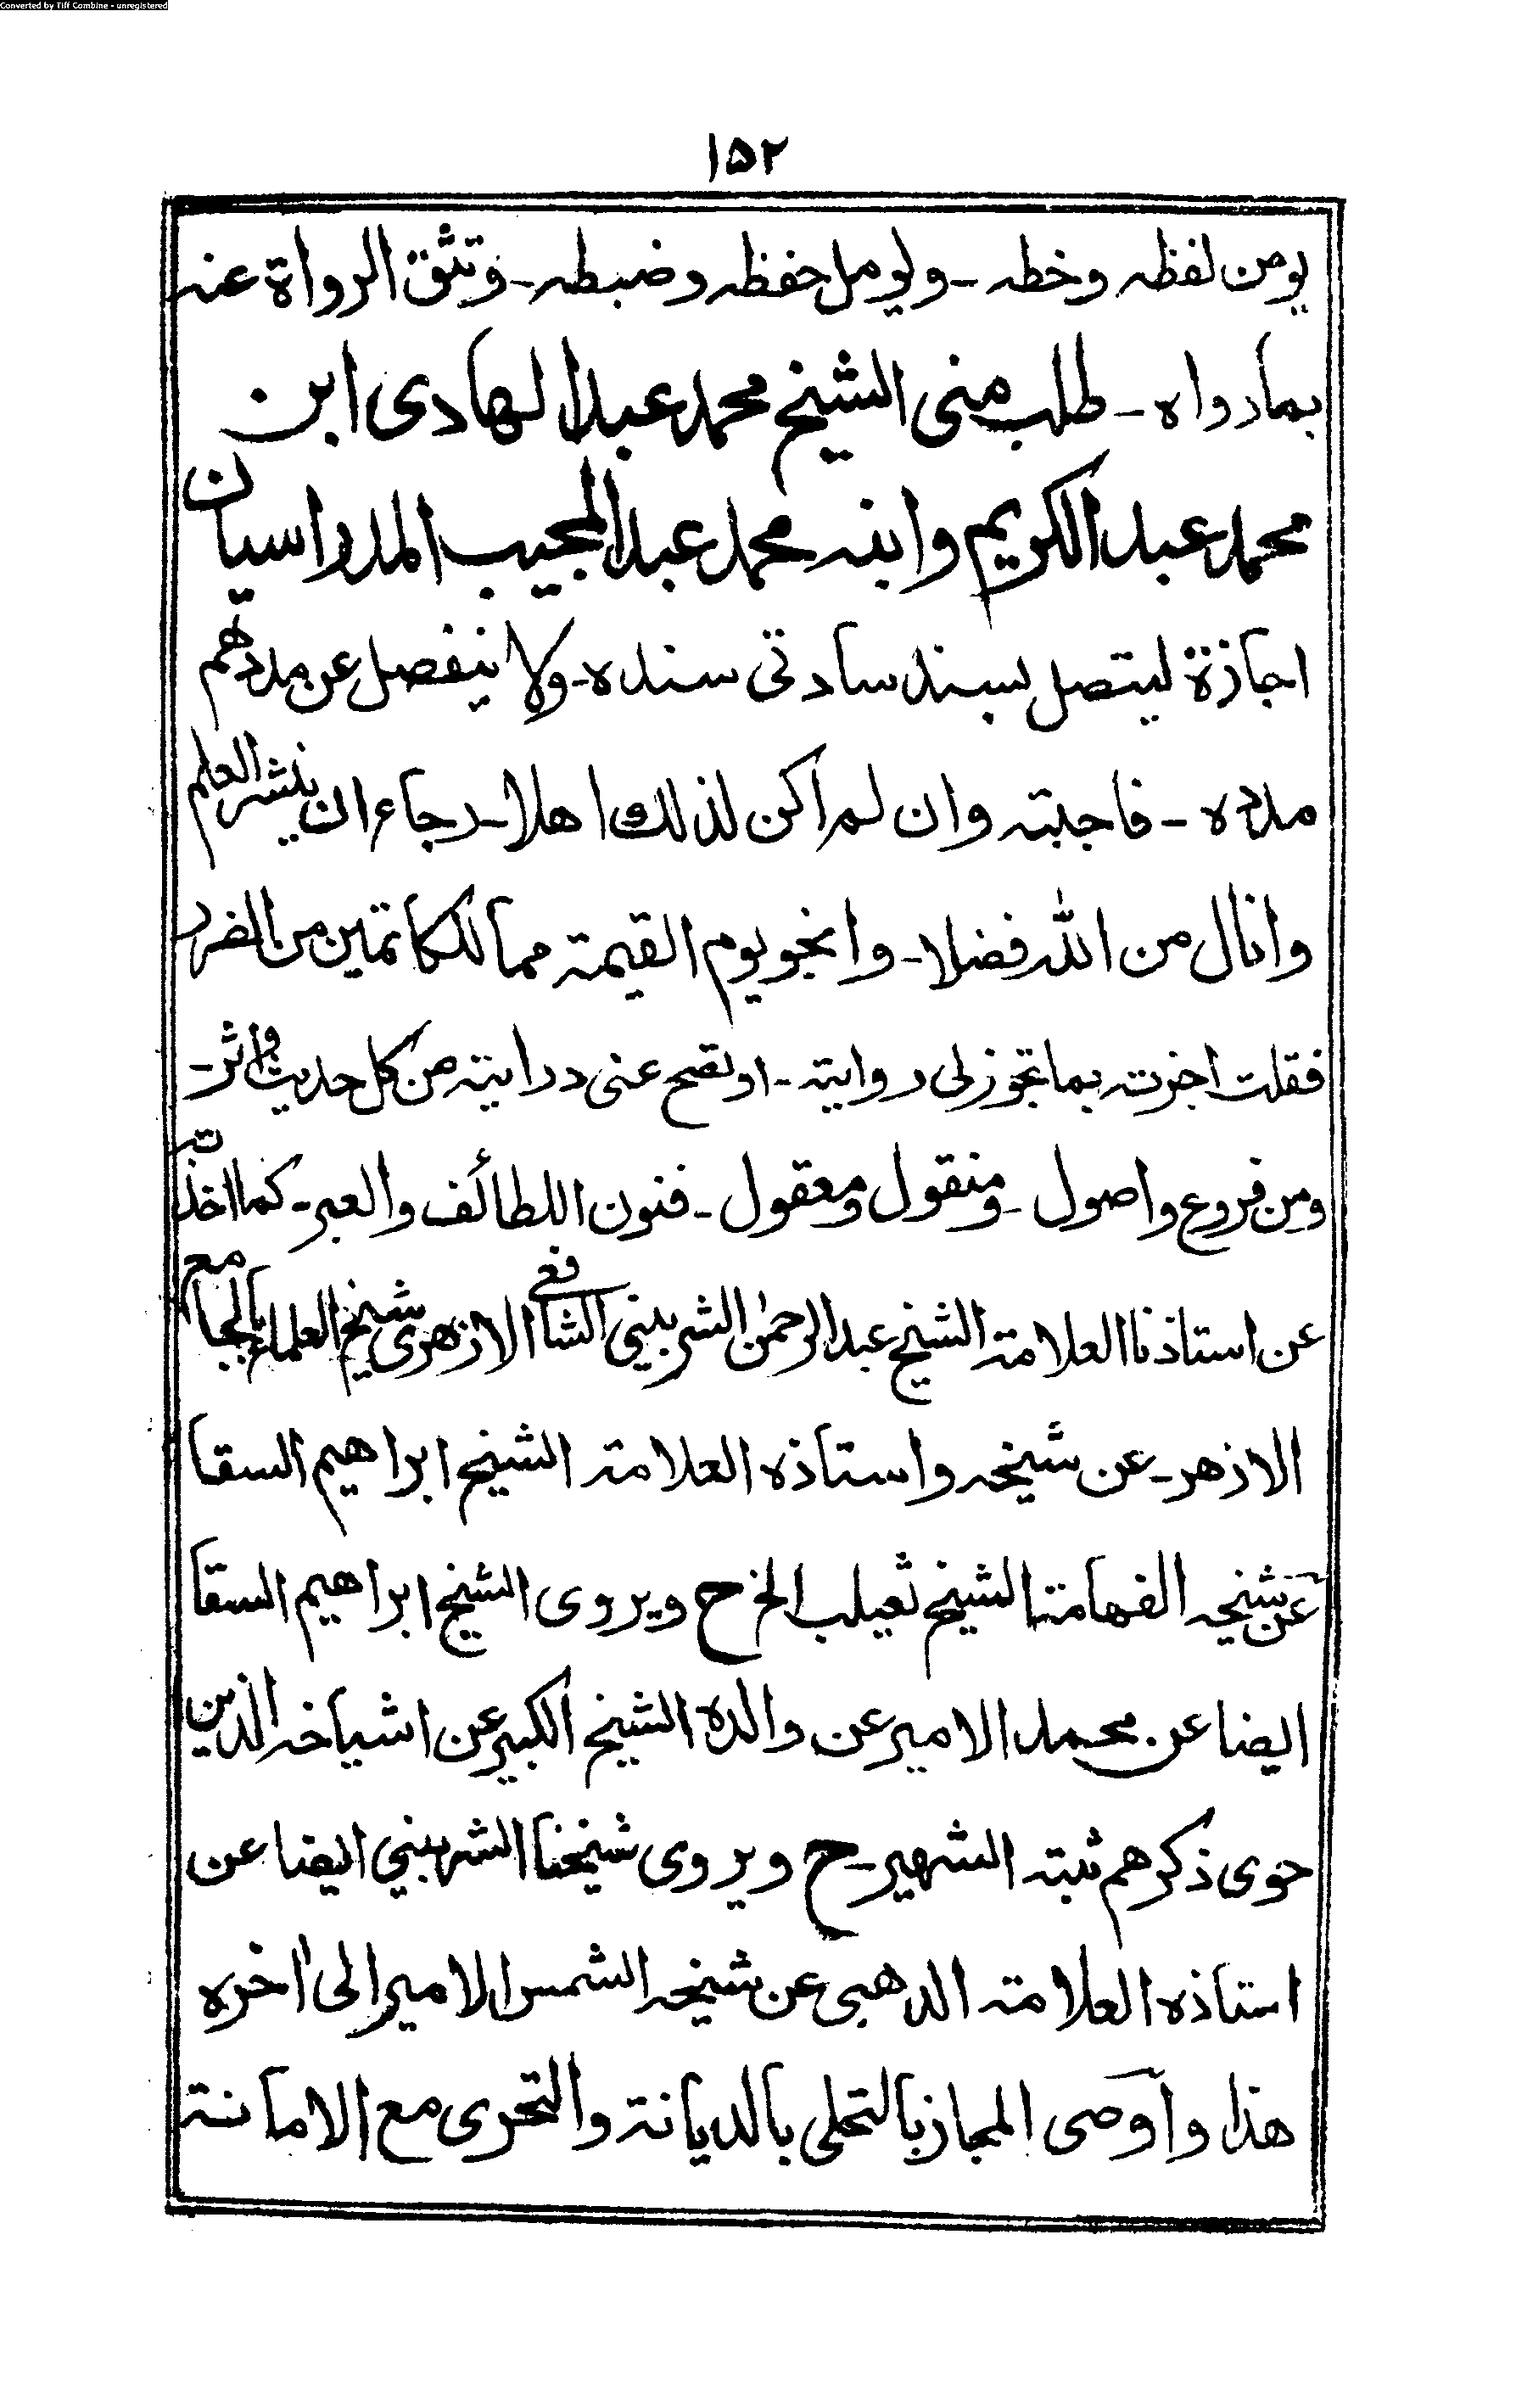 Converted by Tiff Combine - unregistered
١٥٢
يومن لفظه وخطه - ويومل حفظه وضبطه - وتثق الرواة عنه
بمارواه - طلب منى الشيخ محمد عبدالهادى ابن
محمد عبد الكريم وابنه محمد عبدالمجيب المدراسيان
اجازة ليتصل بسند ساد تى سنده - ولا ينفصل عن مددهم
مدده - فاجبته وان لم اكن لذلك اهلا - رجاء ان ينشر العلم
وانال من الله فضلا - وانجو يوم القيمة مما للكاتمين من الضرر
فقلت اجزته بما تجوز لى روايته - او تصح عنى درايته من كل حديث واثر -
ومن فروع واصول - ومنقول ومعقول - فنون اللطائف والعبر - كما اخذته
عن استاذنا العلامة الشيخ عبدالرحمٰن الشربيني الشافعي الازهرى شيخ العلماء بالجامع
الازهر - عن شيخه واستاذه العلامة الشيخ ابراهيم السقا
عن شيخه الفهامة الشيخ ثعيلب الخ ح ويروى الشيخ ابراهيم السقا
ايضا عن محمد الامير عن والده الشيخ الكبير عن اشياخه الذين
حوى ذكرهم ثبته الشهير - ح ويروى شيخنا الشربيني ايضا عن
استاذه العلامة الذهبى عن شيخه الشمس الامير الىٰ اخره
هذا واوصى المجاز بالتحلى بالديانة والتحرى مع الامانة